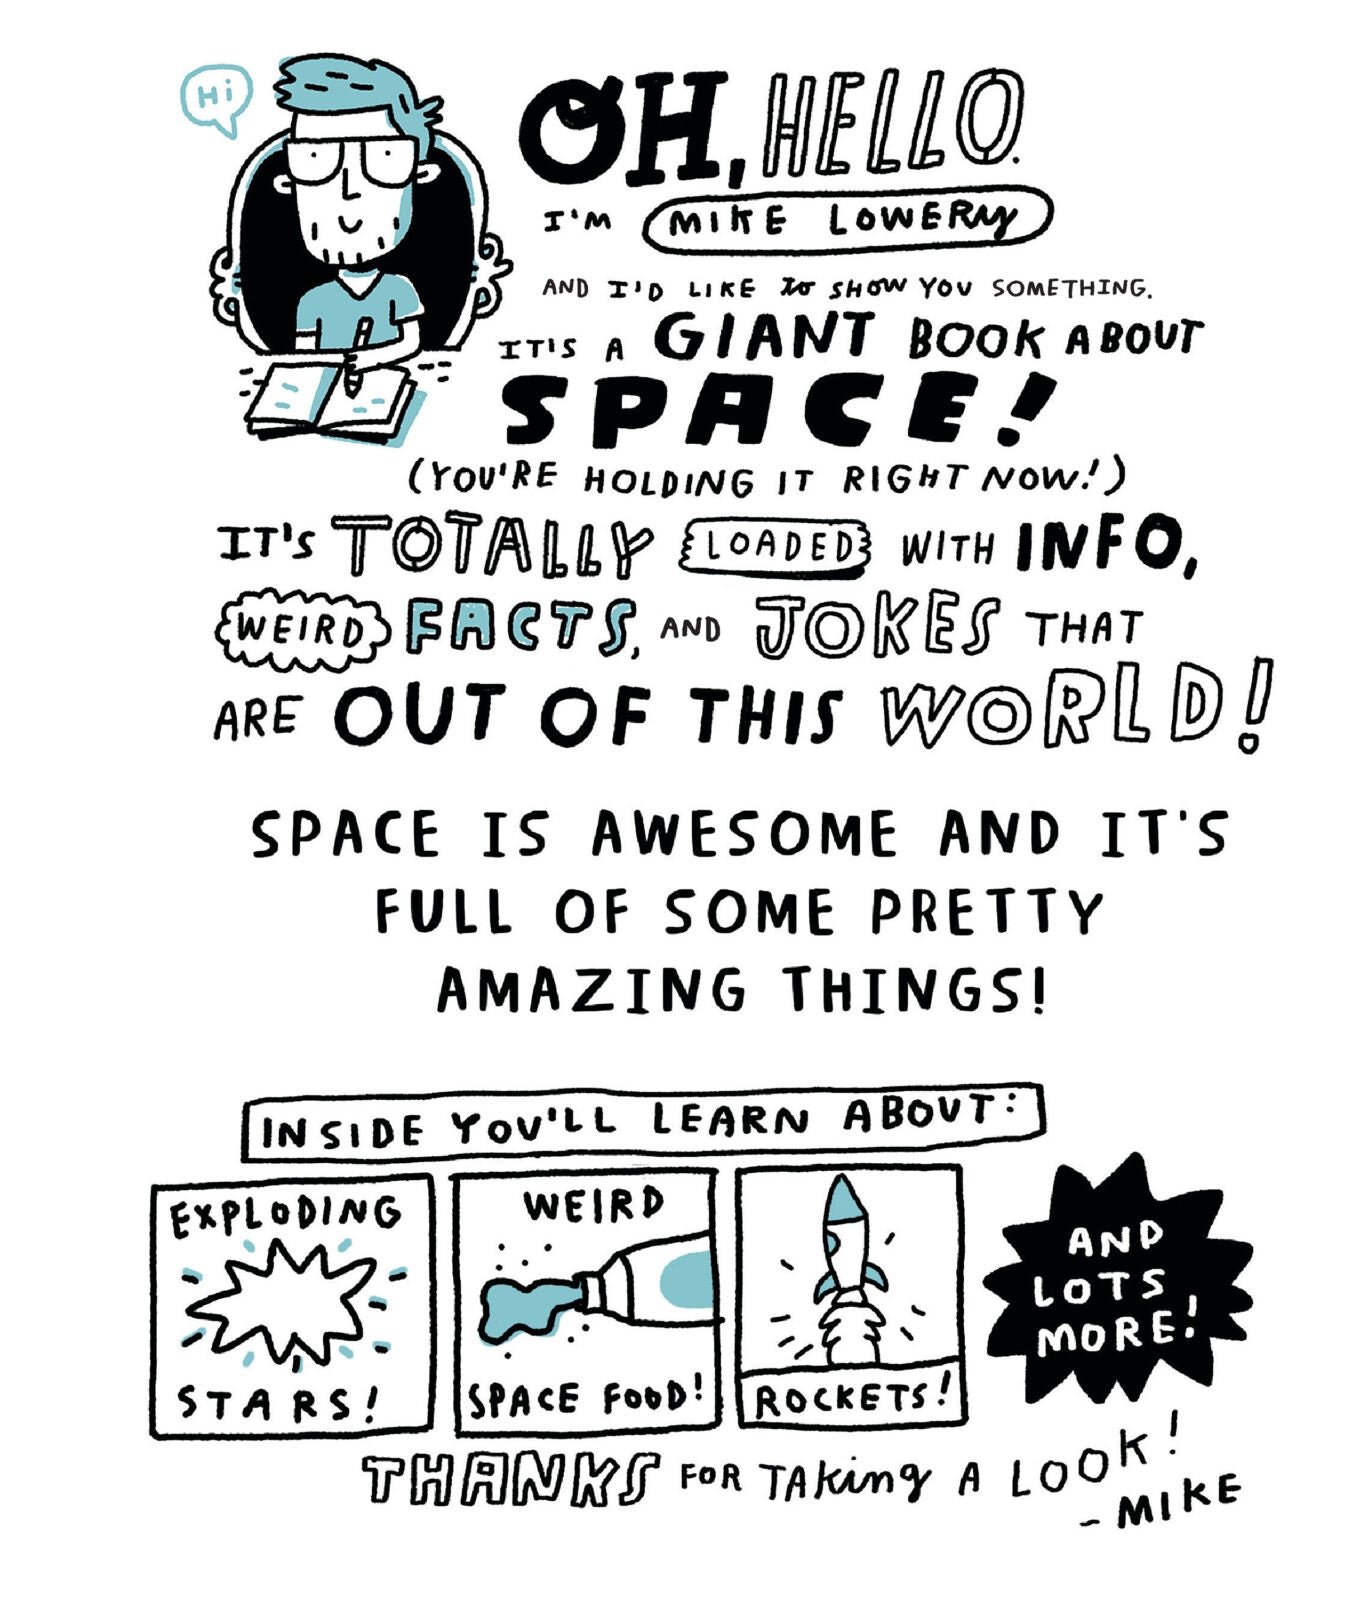 Hi
OH, HELLO.
I'M MIKE LOWERY
AND I'D LIKE to SHOW YOU SOMETHING.
IT'S A GIANT BOOK ABOUT
SPACE!
(YOU'RE HOLDING IT RIGHT NOW!)
IT'S TOTALLY LOADED WITH INFO,
WEIRD FACTS, AND JOKES THAT
ARE OUT OF THIS WORLD!
SPACE IS AWESOME AND IT'S
FULL OF SOME PRETTY
AMAZING THINGS!
INSIDE YOU'LL LEARN ABOUT:
EXPLODING
STARS!
WEIRD
SPACE FOOD!
ROCKETS!
AND
LOTS
MORE!
THANKS FOR TAking A LOOK!
- MIKE